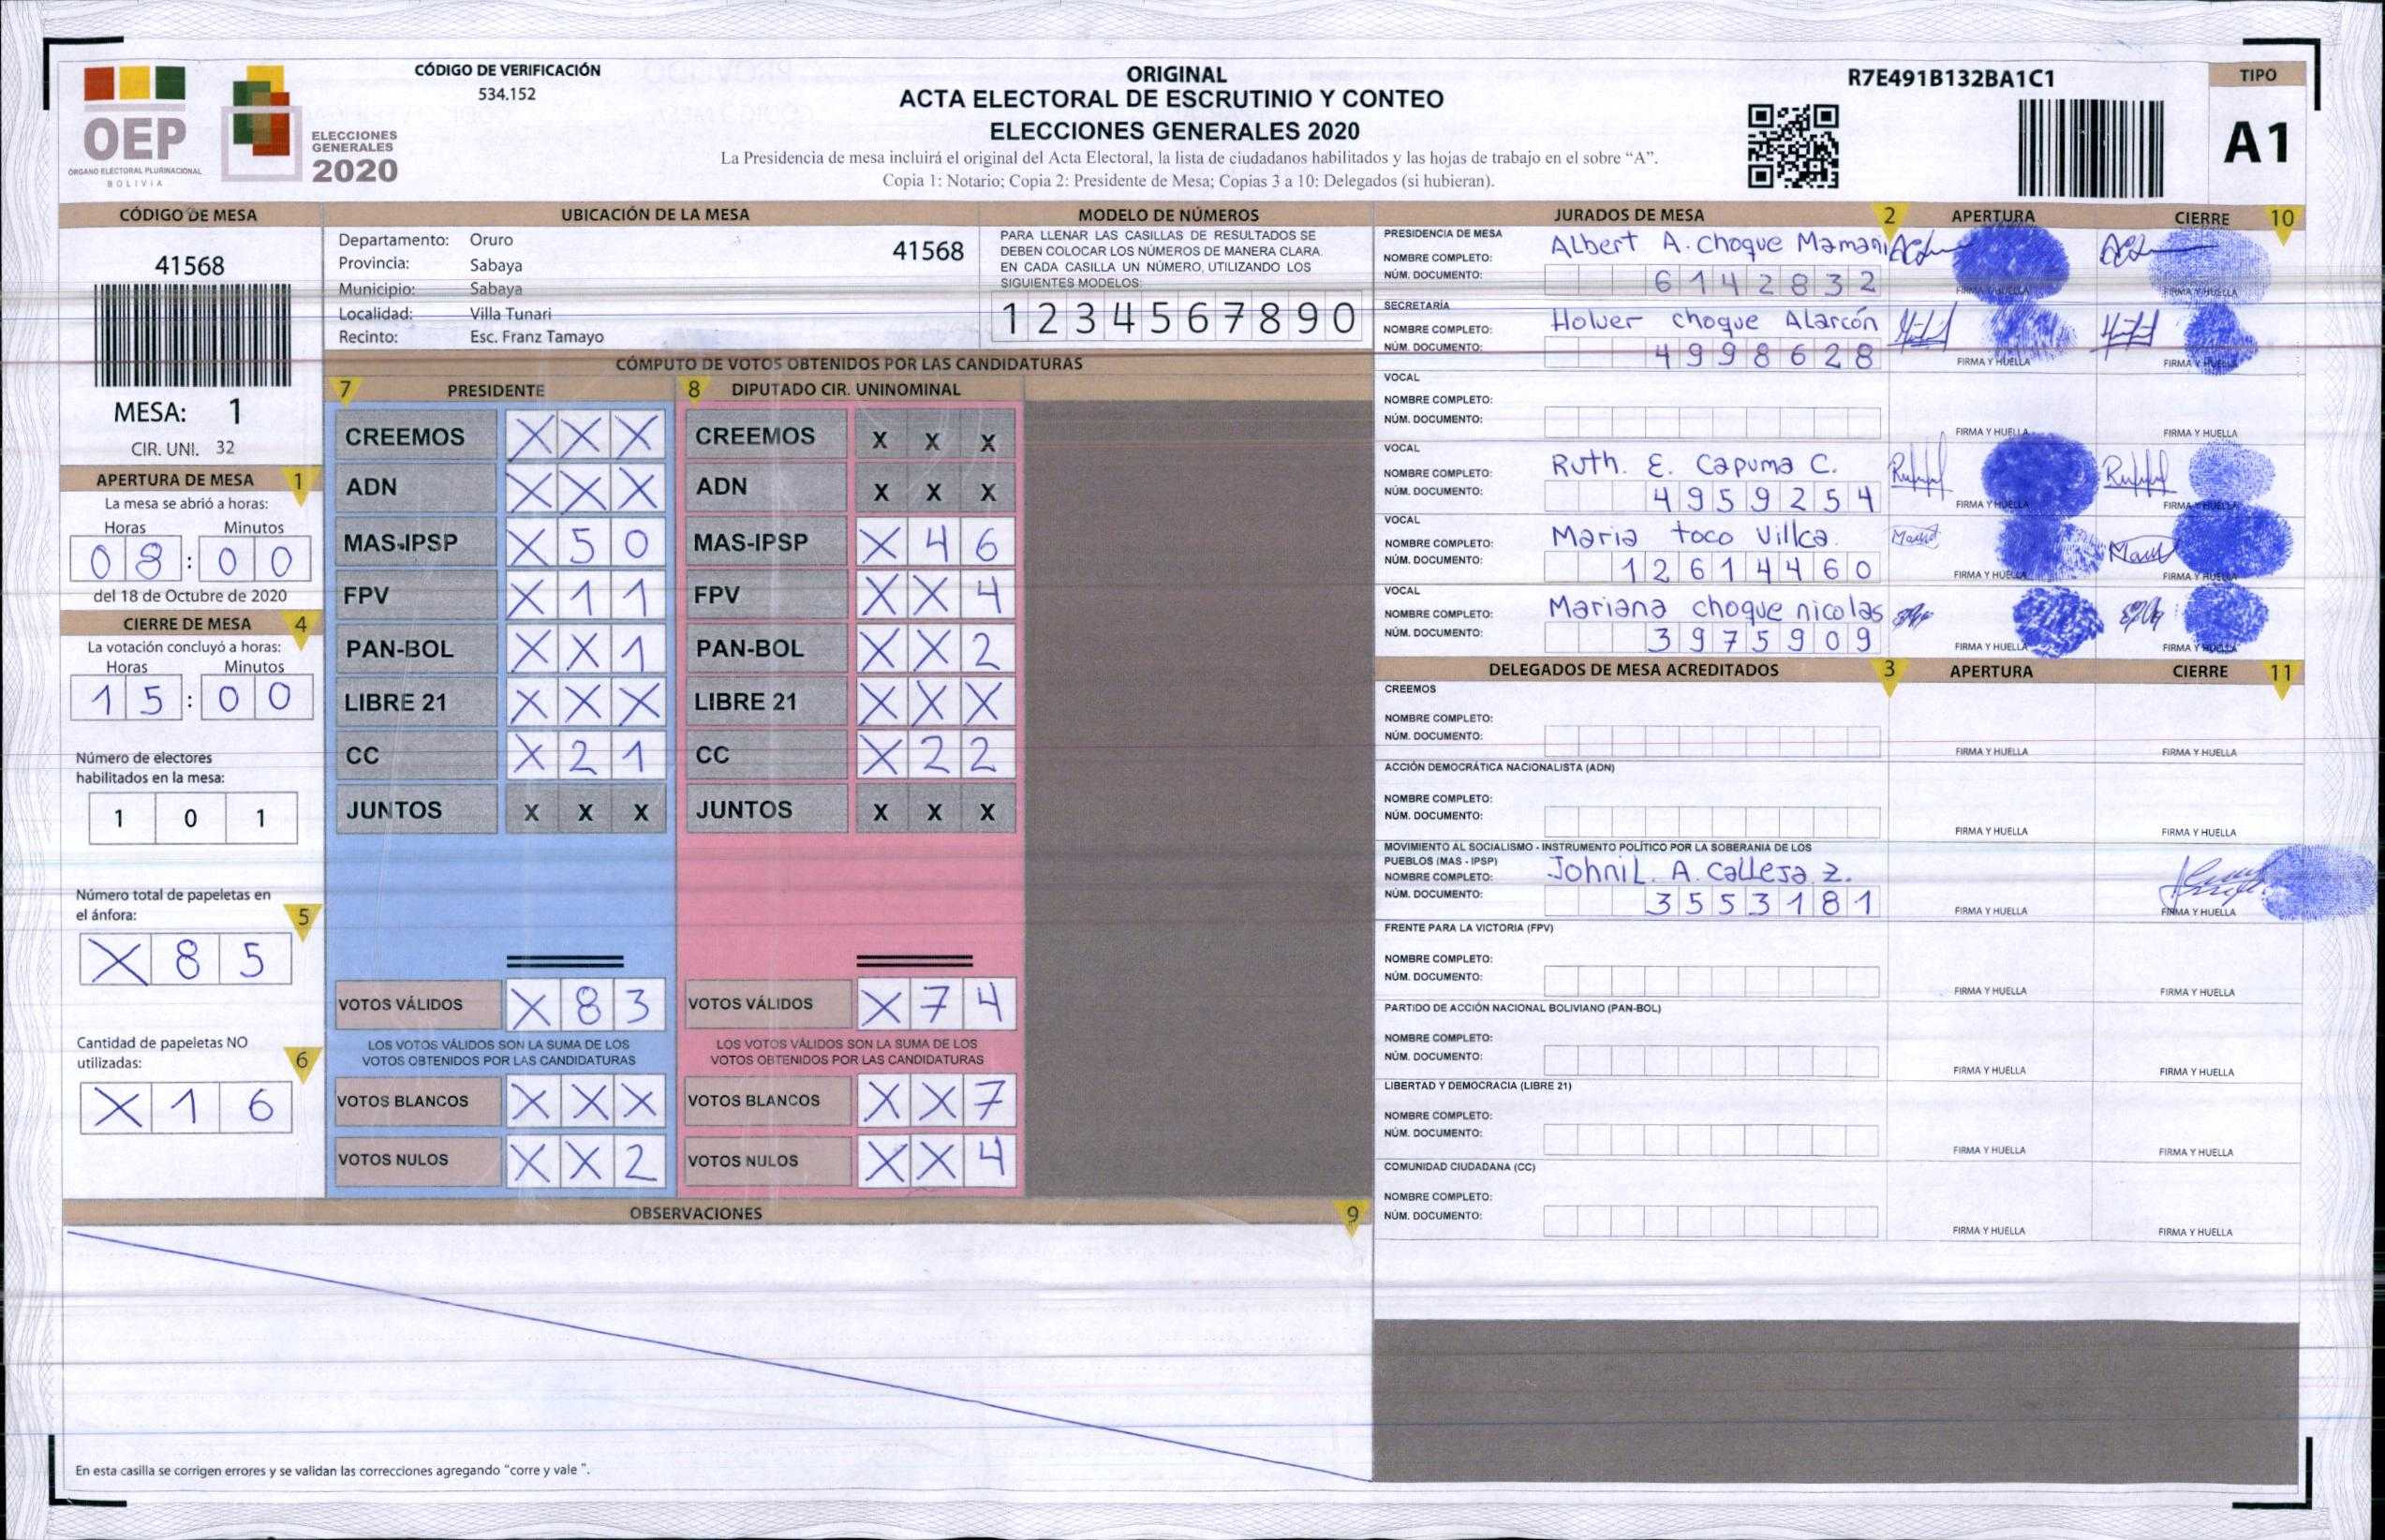 OEP
ÓRGANO ELECTORAL PLURINACIONAL
BOLIVIA
ELECCIONES
GENERALES
2020
CÓDIGO DE VERIFICACIÓN
534.152
ORIGINAL
ACTA ELECTORAL DE ESCRUTINIO Y CONTEO
ELECCIONES GENERALES 2020
La Presidencia de mesa incluirá el original del Acta Electoral, la lista de ciudadanos habilitados y las hojas de trabajo en el sobre “A”.
Copia 1: Notario; Copia 2: Presidente de Mesa; Copias 3 a 10: Delegados (si hubieran).
R7E491B132BA1C1
TIPO
A1
CÓDIGO DE MESA
41568
MESA: 1
CIR. UNI. 32
UBICACIÓN DE LA MESA
Departamento: Oruro
41568
Provincia: Sabaya
Municipio: Sabaya
Localidad: Villa Tunari
Recinto: Esc. Franz Tamayo
MODELO DE NÚMEROS
PARA LLENAR LAS CASILLAS DE RESULTADOS SE
DEBEN COLOCAR LOS NÚMEROS DE MANERA CLARA.
EN CADA CASILLA UN NÚMERO, UTILIZANDO LOS
SIGUIENTES MODELOS:
1 2 3 4 5 6 7 8 9 0
APERTURA DE MESA 1
La mesa se abrió a horas:
Horas Minutos
0 8 : 0 0
del 18 de Octubre de 2020
CIERRE DE MESA 4
La votación concluyó a horas:
Horas Minutos
1 5 : 0 0
Número de electores
habilitados en la mesa:
1 0 1
Número total de papeletas en
el ánfora: 5
X 8 5
Cantidad de papeletas NO
utilizadas: 6
X 1 6
CÓMPUTO DE VOTOS OBTENIDOS POR LAS CANDIDATURAS
7 PRESIDENTE
CREEMOS X X X
ADN X X X
MAS-IPSP X 5 0
FPV X 1 1
PAN-BOL X X 1
LIBRE 21 X X X
CC X 2 1
JUNTOS X X X
VOTOS VÁLIDOS X 8 3
LOS VOTOS VÁLIDOS SON LA SUMA DE LOS
VOTOS OBTENIDOS POR LAS CANDIDATURAS
VOTOS BLANCOS X X X
VOTOS NULOS X X 2
8 DIPUTADO CIR. UNINOMINAL
CREEMOS X X X
ADN X X X
MAS-IPSP X 4 6
FPV X X 4
PAN-BOL X X 2
LIBRE 21 X X X
CC X 2 2
JUNTOS X X X
VOTOS VÁLIDOS X 7 4
LOS VOTOS VÁLIDOS SON LA SUMA DE LOS
VOTOS OBTENIDOS POR LAS CANDIDATURAS
VOTOS BLANCOS X X 7
VOTOS NULOS X X 4
OBSERVACIONES 9
En esta casilla se corrigen errores y se validan las correcciones agregando “corre y vale ”.
JURADOS DE MESA 2 APERTURA CIERRE 10
PRESIDENCIA DE MESA
NOMBRE COMPLETO: Albert A. Choque Mamani
NÚM. DOCUMENTO: 6 1 4 2 8 3 2
FIRMA Y HUELLA FIRMA Y HUELLA
SECRETARÍA
NOMBRE COMPLETO: Holver choque Alarcón
NÚM. DOCUMENTO: 4 9 9 8 6 2 8
FIRMA Y HUELLA FIRMA Y HUELLA
VOCAL
NOMBRE COMPLETO:
NÚM. DOCUMENTO:
FIRMA Y HUELLA FIRMA Y HUELLA
VOCAL
NOMBRE COMPLETO: Ruth. E. Capuma C.
NÚM. DOCUMENTO: 4 9 5 9 2 5 4
FIRMA Y HUELLA FIRMA Y HUELLA
VOCAL
NOMBRE COMPLETO: Maria toco Villca.
NÚM. DOCUMENTO: 1 2 6 1 4 4 6 0
FIRMA Y HUELLA FIRMA Y HUELLA
VOCAL
NOMBRE COMPLETO: Mariana choque nicolas
NÚM. DOCUMENTO: 3 9 7 5 9 0 9
FIRMA Y HUELLA FIRMA Y HUELLA
DELEGADOS DE MESA ACREDITADOS 3 APERTURA CIERRE 11
CREEMOS
NOMBRE COMPLETO:
NÚM. DOCUMENTO:
FIRMA Y HUELLA FIRMA Y HUELLA
ACCIÓN DEMOCRÁTICA NACIONALISTA (ADN)
NOMBRE COMPLETO:
NÚM. DOCUMENTO:
FIRMA Y HUELLA FIRMA Y HUELLA
MOVIMIENTO AL SOCIALISMO - INSTRUMENTO POLÍTICO POR LA SOBERANIA DE LOS
PUEBLOS (MAS - IPSP)
NOMBRE COMPLETO: JohniL. A. Calleja Z.
NÚM. DOCUMENTO: 3 5 5 3 1 8 1
FIRMA Y HUELLA FIRMA Y HUELLA
FRENTE PARA LA VICTORIA (FPV)
NOMBRE COMPLETO:
NÚM. DOCUMENTO:
FIRMA Y HUELLA FIRMA Y HUELLA
PARTIDO DE ACCIÓN NACIONAL BOLIVIANO (PAN-BOL)
NOMBRE COMPLETO:
NÚM. DOCUMENTO:
FIRMA Y HUELLA FIRMA Y HUELLA
LIBERTAD Y DEMOCRACIA (LIBRE 21)
NOMBRE COMPLETO:
NÚM. DOCUMENTO:
FIRMA Y HUELLA FIRMA Y HUELLA
COMUNIDAD CIUDADANA (CC)
NOMBRE COMPLETO:
NÚM. DOCUMENTO:
FIRMA Y HUELLA FIRMA Y HUELLA